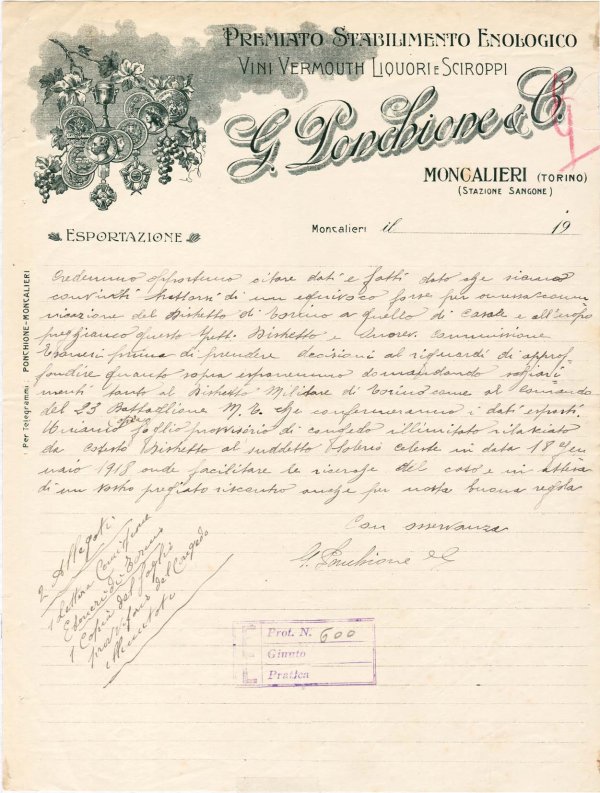 PREMIATO STABILIMENTO ENOLOGICO
VINI VERMOUTH LIQUORI E SCIROPPI
G. Ponchione & C.
MONCALIERI (TORINO)
(STAZIONE SANGONE)
ESPORTAZIONE
Moncalieri il 19
Per Telegrammi: PONCHIONE-MONCALIERI
Crediamo opportuno citare dati e fatti dato che siamo
convinti trattarsi di un equivoco forse per omessa comu
nicazione del Distretto di Torino a quello di Casale e all'uopo
preghiamo questo Distretto e Onorev. Commissione
Esoneri prima di prendere decisioni al riguardo di approf
fondire quanto sopra esponemmo domandando schiari
menti tanto al Distretto Militare di Torino come al Comando
del 23 Battaglione M. T. che confermeranno i dati esposti.
foglio provvisorio di congedo illimitato rilasciato
da codesto Distretto al suddetto celeste in data 18 gen
naio 1918 onde facilitare le ricerche del caso e in attesa
di un vostro pregiato riscontro anche per nostra buona regola
Con osservanza
G. Ponchione & C
2 Allegati
1 Lettera Commissione
Esoneri di Torino
1 Copia del foglio
provvisorio del Congedo
illimitato
Prot. N. 600
Giunto
Pratica